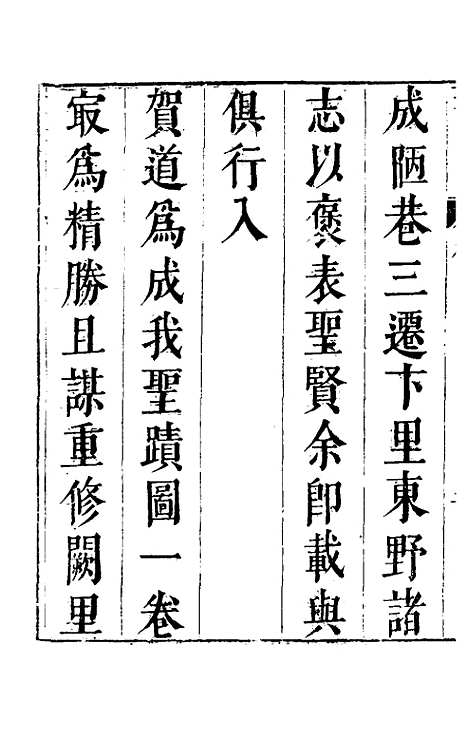 成陋巷三遷卞里東野諸
志以褒表聖賢余卽載與
俱行入
賀道爲成我聖蹟圖一卷
㝡爲精勝且謀重修闕里